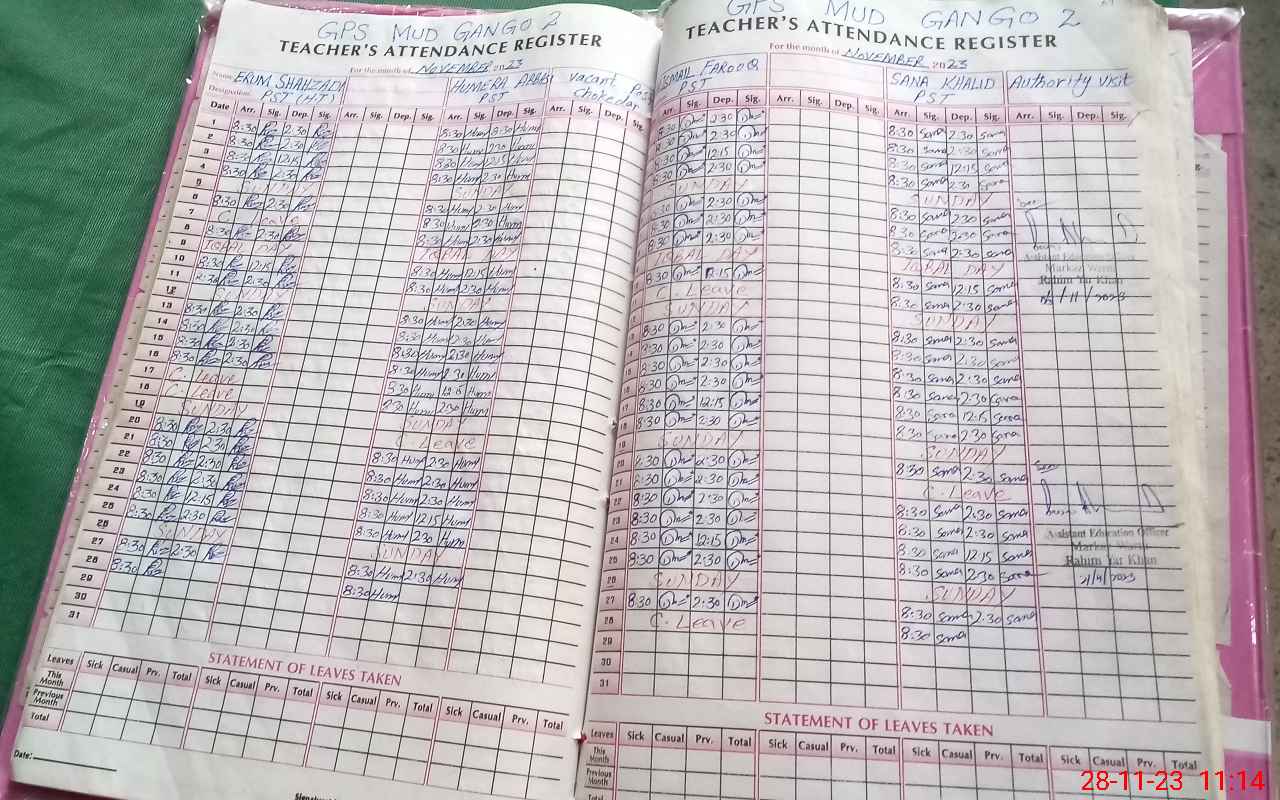 GPS MUD GANGO 2
TEACHER'S ATTENDANCE REGISTER
For the month of NOVEMBER 2023
Name ERUM SHAHZADI
HUMERA
vacant
Designation PST (H.T)
PST
chokedar
Date Arr. Sig. Dep. Sig. Arr. Sig. Dep. Sig. Arr. Sig. Dep. Sig. Arr. Sig. Dep. Sig.
1 8:30 2:30 8:30 Hum 8:30 Hum
2 8:30 2:30 8:30 Hum 2:30 Hum
3 8:30 12:15 8:30 Hum 12:15 Hum
4 8:30 2:30 8:30 Hum 2:30 Hum
5 SUNDAY SUNDAY
6 8:30 2:30 8:30 Hum 2:30 Hum
7 C. Leave 8:30 Hum 2:30 Hum
8 8:30 2:30 8:30 Hum 2:30 Hum
9 IQBAL DAY IQBAL DAY
10 8:30 12:15 8:30 Hum 12:15 Hum
11 8:30 2:30 8:30 Hum 2:30 Hum
12 SUNDAY SUNDAY
13 8:30 2:30 8:30 Hum 2:30 Hum
14 8:30 2:30 8:30 Hum 2:30 Hum
15 8:30 2:30 8:30 Hum 2:30 Hum
16 8:30 2:30 8:30 Hum 2:30 Hum
17 C. Leave
18 C. Leave 8:30 Hum 2:30 Hum
19 SUNDAY SUNDAY
20 8:30 2:30 C. Leave
21 8:30 2:30 8:30 Hum 2:30 Hum
22 8:30 2:30 8:30 Hum 2:30 Hum
23 8:30 2:30 8:30 Hum 2:30 Hum
24 8:30 12:15 8:30 Hum 12:15 Hum
25 8:30 2:30 8:30 Hum 2:30 Hum
26 SUNDAY SUNDAY
27 8:30 2:30 8:30 Hum 2:30 Hum
28 8:30 8:30 Hum
29
30
31
STATEMENT OF LEAVES TAKEN
Leaves Sick Casual Prv. Total Sick Casual Prv. Total Sick Casual Prv. Total Sick Casual Prv. Total
This Month
Previous Month
Total
Date:
GPS MUD GANGO 2
TEACHER'S ATTENDANCE REGISTER
For the month of NOVEMBER 2023
ISMAIL FAROOQ
SANA KHALID
Authority visit
PST
PST
Arr. Sig. Dep. Sig. Arr. Sig. Dep. Sig. Arr. Sig. Dep. Sig. Arr. Sig. Dep. Sig.
8:30 2:30 8:30 Sana 2:30 Sana
8:30 2:30 8:30 Sana 2:30 Sana
8:30 12:15 8:30 Sana 12:15 Sana
8:30 2:30 8:30 Sana 2:30 Sana
SUNDAY SUNDAY
8:30 2:30 8:30 Sana 2:30 Sana
8:30 2:30 8:30 Sana 2:30 Sana
8:30 2:30 8:30 Sana 2:30 Sana
IQBAL DAY IQBAL DAY
8:30 12:15 8:30 Sana 12:15 Sana
C. Leave 8:30 Sana 2:30 Sana
SUNDAY SUNDAY
8:30 2:30 8:30 Sana 2:30 Sana
8:30 2:30 8:30 Sana 2:30 Sana
8:30 2:30 8:30 Sana 2:30 Sana
8:30 2:30 8:30 Sana 2:30 Sana
8:30 12:15 8:30 Sana 12:15 Sana
8:30 2:30 8:30 Sana 2:30 Sana
SUNDAY SUNDAY
20 8:30 2:30 8:30 Sana 2:30 Sana
21 8:30 2:30 C. Leave
22 8:30 2:30 8:30 Sana 2:30 Sana
23 8:30 2:30 8:30 Sana 2:30 Sana
24 8:30 12:15 8:30 Sana 12:15 Sana
25 8:30 2:30 8:30 Sana 2:30 Sana
26 SUNDAY SUNDAY
27 8:30 2:30 8:30 Sana 2:30 Sana
28 C. Leave 8:30 Sana
29
30
31
Assistant Education Officer
Rahim Yar Khan
Assistant Education Officer
Rahim Yar Khan
STATEMENT OF LEAVES TAKEN
Leaves Sick Casual Prv. Total Sick Casual Prv. Total Sick Casual Prv. Total Sick Casual Prv. Total
This Month
Previous Month
Total
28-11-23 11:14